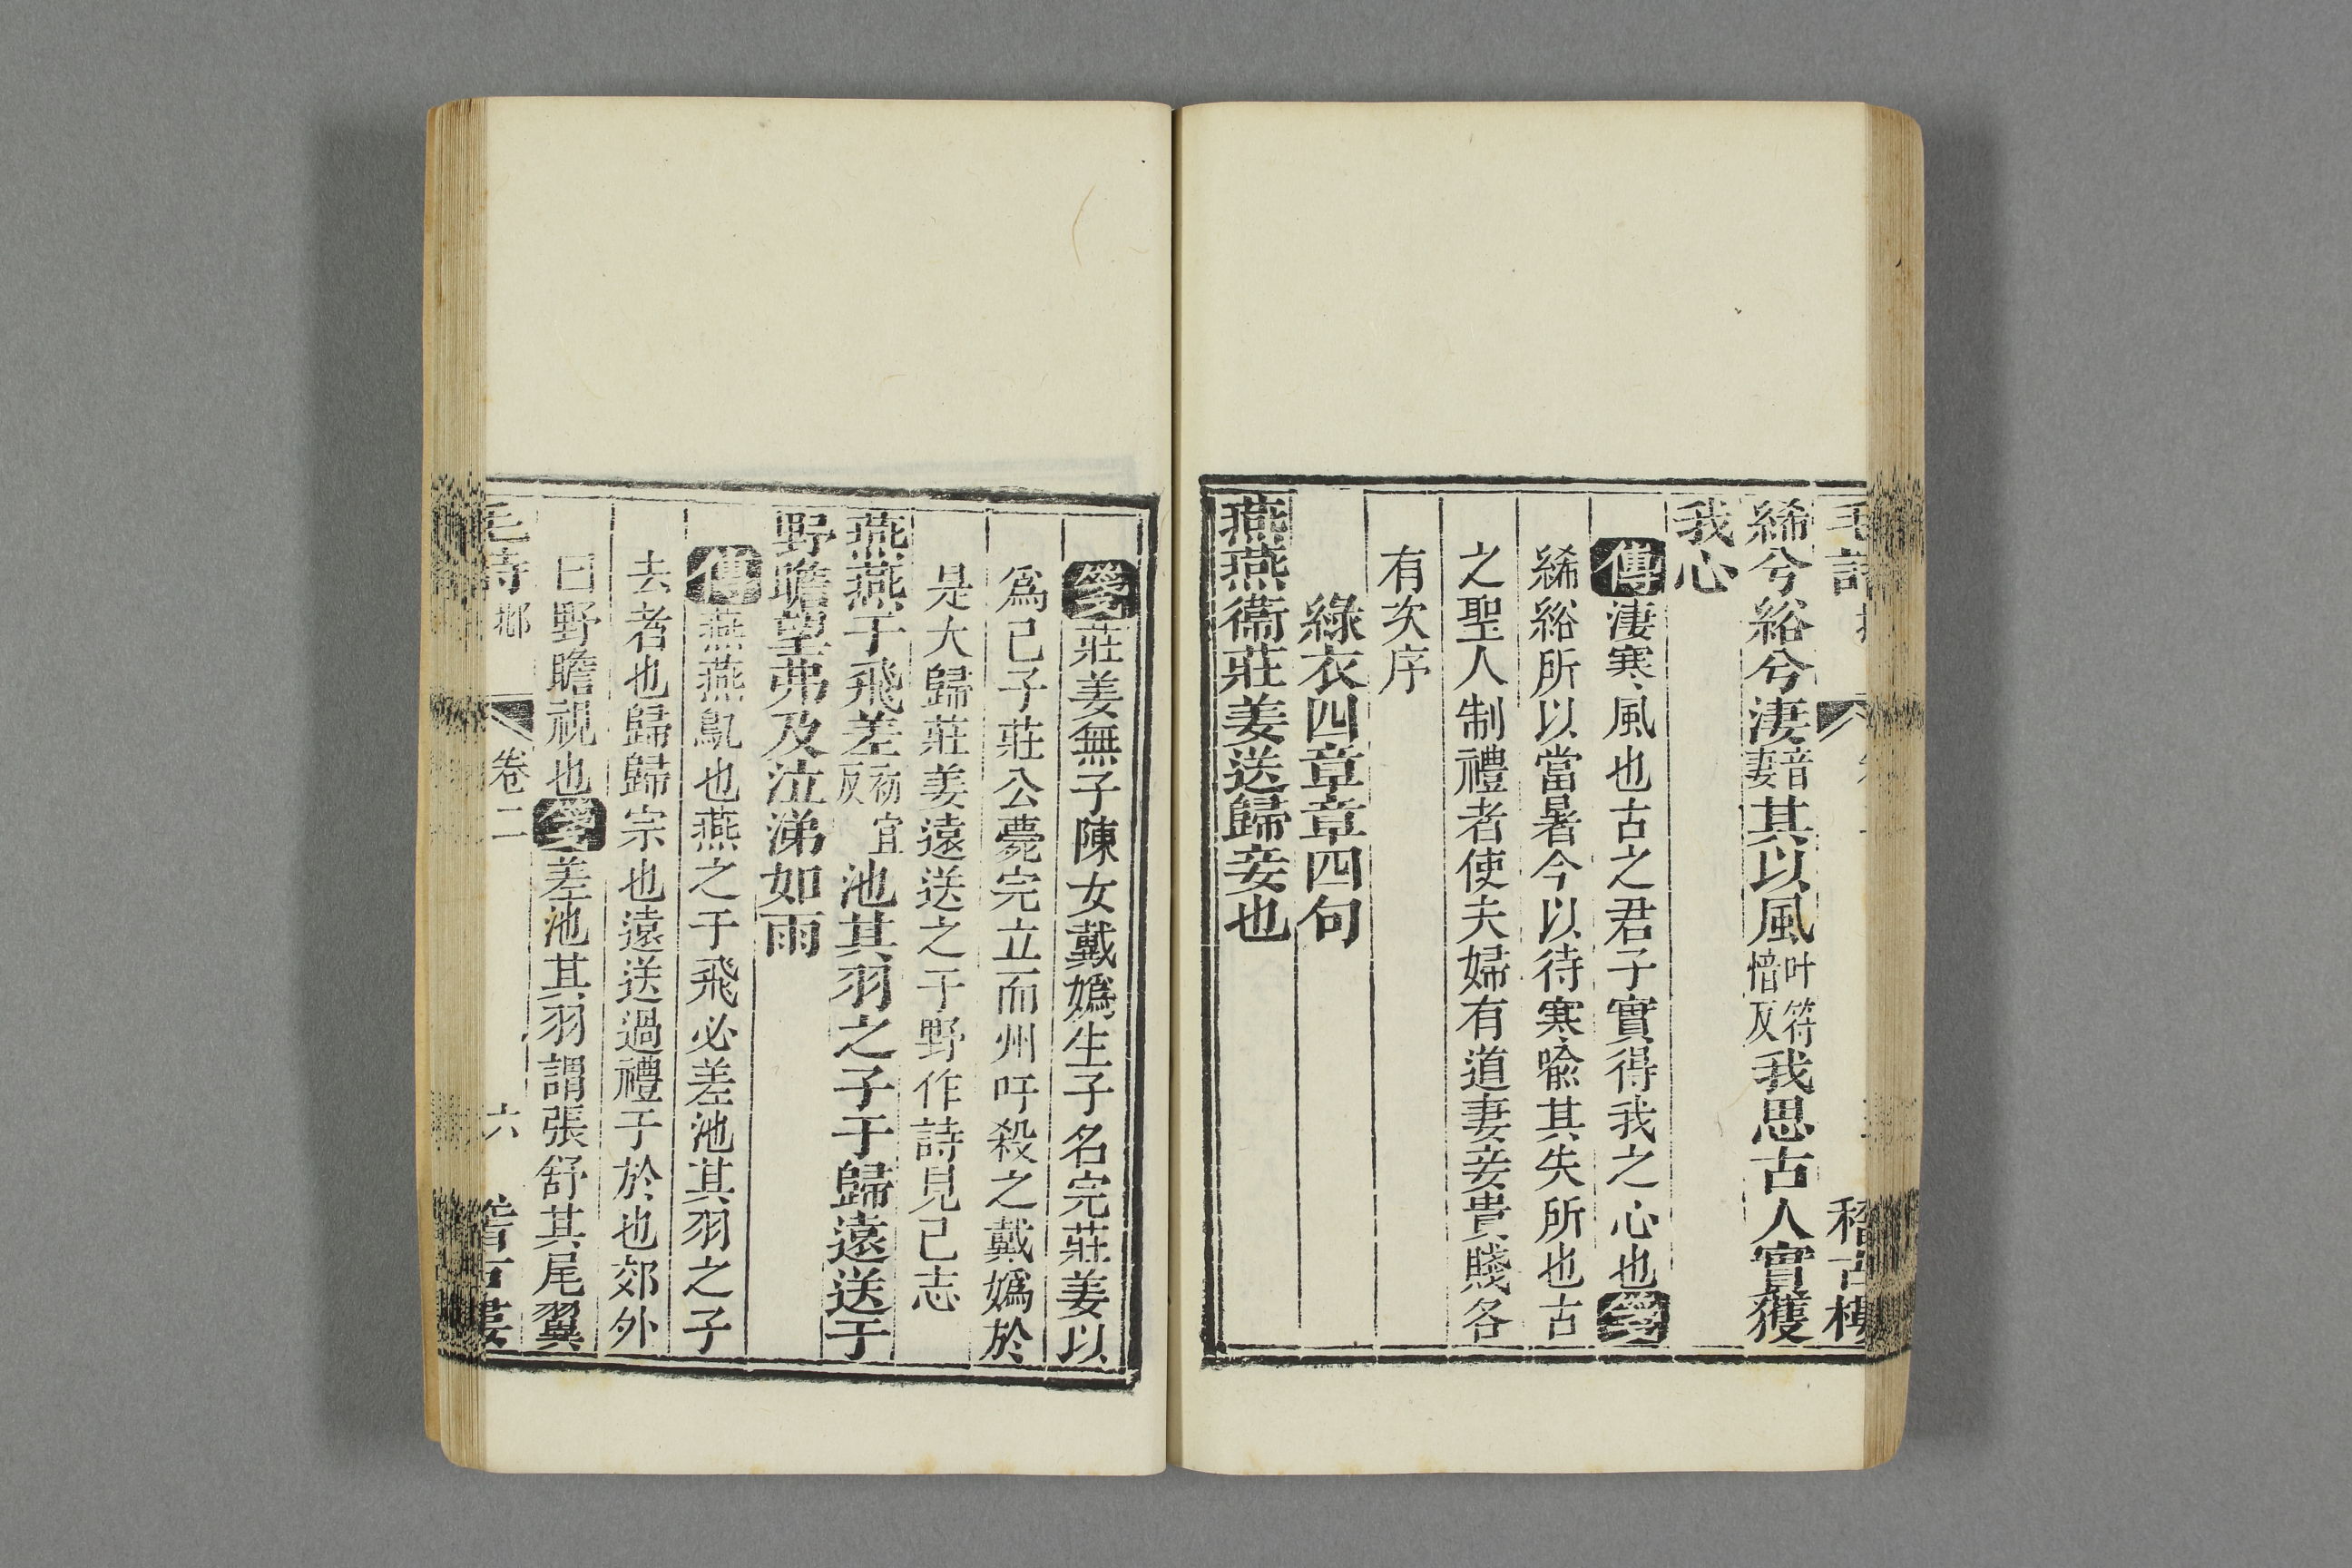 絺兮綌兮淒音妻其以風叶符愔反我思古人實獲
我心
傳淒寒風也古之君子實得我之心也箋
絺綌所以當暑今以待寒喩其失所也古
之聖人制禮者使夫婦有道妻妾貴賤各
有次序
綠衣四章章四句
燕燕衞莊姜送歸妾也
箋莊姜無子陳女戴嬀生子名完莊姜以
爲己子莊公薨完立而州吁殺之戴嬀於
是大歸莊姜遠送之于野作詩見己志
燕燕于飛差初宜反池其羽之子于歸遠送于
野瞻望弗及泣涕如雨
傳燕燕鳦也燕之于飛必差池其羽之子
去者也歸歸宗也遠送過禮于於也郊外
曰野瞻視也箋差池其羽謂張舒其尾翼
毛詩 鄉 卷二 六